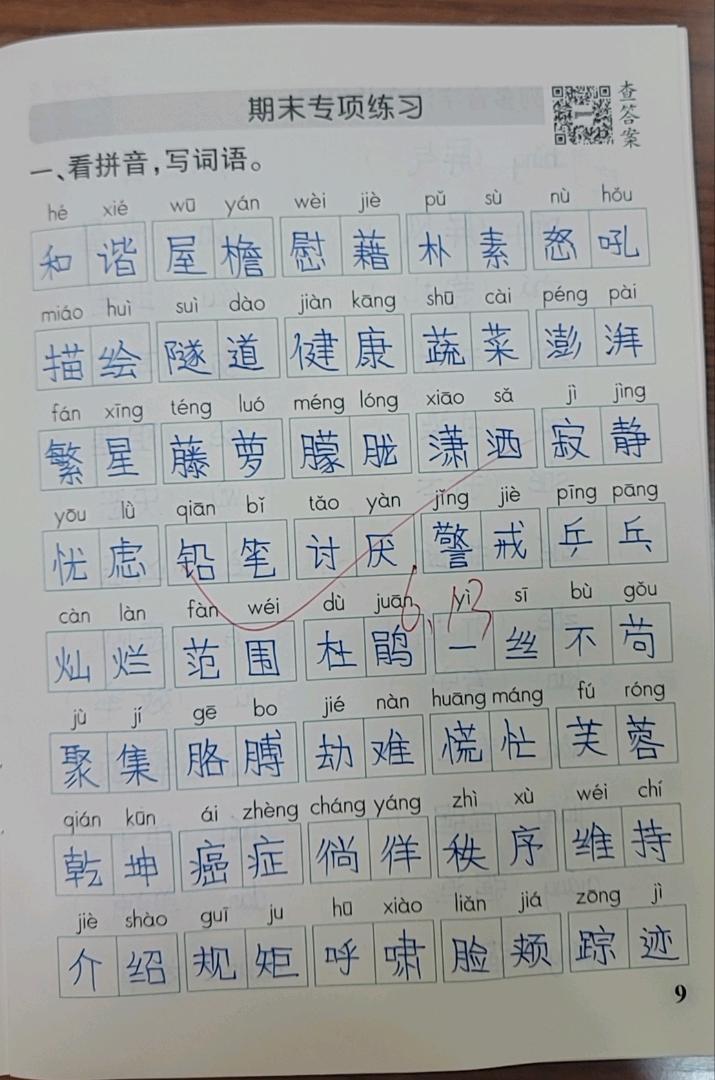 期末专项练习
查答案
一、看拼音,写词语。
hé xié wū yán wèi jiè pǔ sù nù hǒu
和谐 屋檐 慰藉 朴素 怒吼
miáo huì suì dào jiàn kāng shū cài péng pài
描绘 隧道 健康 蔬菜 澎湃
fán xīng téng luó méng lóng xiāo sǎ jì jìng
繁星 藤萝 朦胧 潇洒 寂静
yōu lǜ qiān bǐ tǎo yàn jǐng jiè pīng pāng
忧虑 铅笔 讨厌 警戒 乒乓
càn làn fàn wéi dù juān yì sī bù gǒu
灿烂 范围 杜鹃 一丝不苟
6.13
jù jí gē bo jié nàn huāng máng fú róng
聚集 胳膊 劫难 慌忙 芙蓉
qián kūn ái zhèng cháng yáng zhì xù wéi chí
乾坤 癌症 徜徉 秩序 维持
jiè shào guī ju hū xiào liǎn jiá zōng jì
介绍 规矩 呼啸 脸颊 踪迹
9